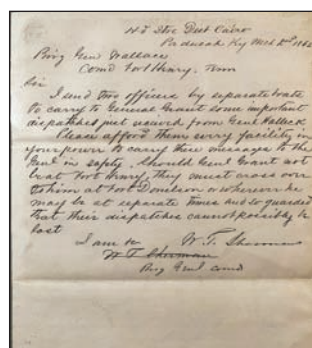 Hd Qrs Dist Cairo
Paducah Ky Mch 2nd 1862
Brig Genl Wallace
Comd Fort Henry, Tenn
Sir
I send two officers by separate boats
to carry to General Grant some important
dispatches just received from Genl Halleck
Please afford them every facility in
your power to carry these messages to the
Genl in safety. Should Genl Grant not
be at Fort Henry, they must cross over
to him at Fort Donelson or wherever he
may be at separate times and so guarded
that their dispatches cannot possibly be
lost
I am &c W. T. Sherman
W T Sherman
Brig Genl comd